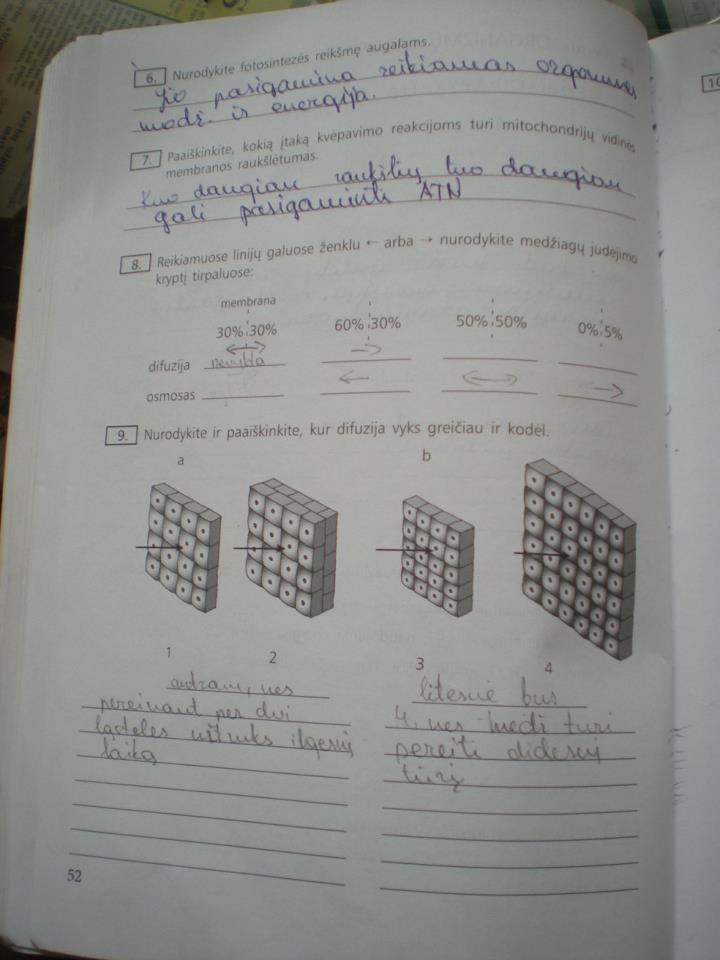 6. Nurodykite fotosintezės reikšmę augalams.
Jio pasigamina reikiamas organines
medž. ir energija.
7. Paaiškinkite, kokią įtaką kvėpavimo reakcijoms turi mitochondrijų vidinės
membranos raukšlėtumas.
Kuo daugiau raukšlių tuo daugiau
gali pasigaminti ATN
8. Reikiamuose linijų galuose ženklu ← arba → nurodykite medžiagų judėjimo
kryptį tirpaluose:
membrana
30% 30% 60% 30% 50% 50% 0% 5%
↔ →
difuzija nevyksta
← ↔ →
osmosas
9. Nurodykite ir paaiškinkite, kur difuzija vyks greičiau ir kodėl.
a b
1 2 3 4
antram, nes
pereinant per dvi
ląsteles užtruks ilgesnį
laiką
lėtesnė bus
4. nes medž turi
pereiti didesnį
tūrį
52
10